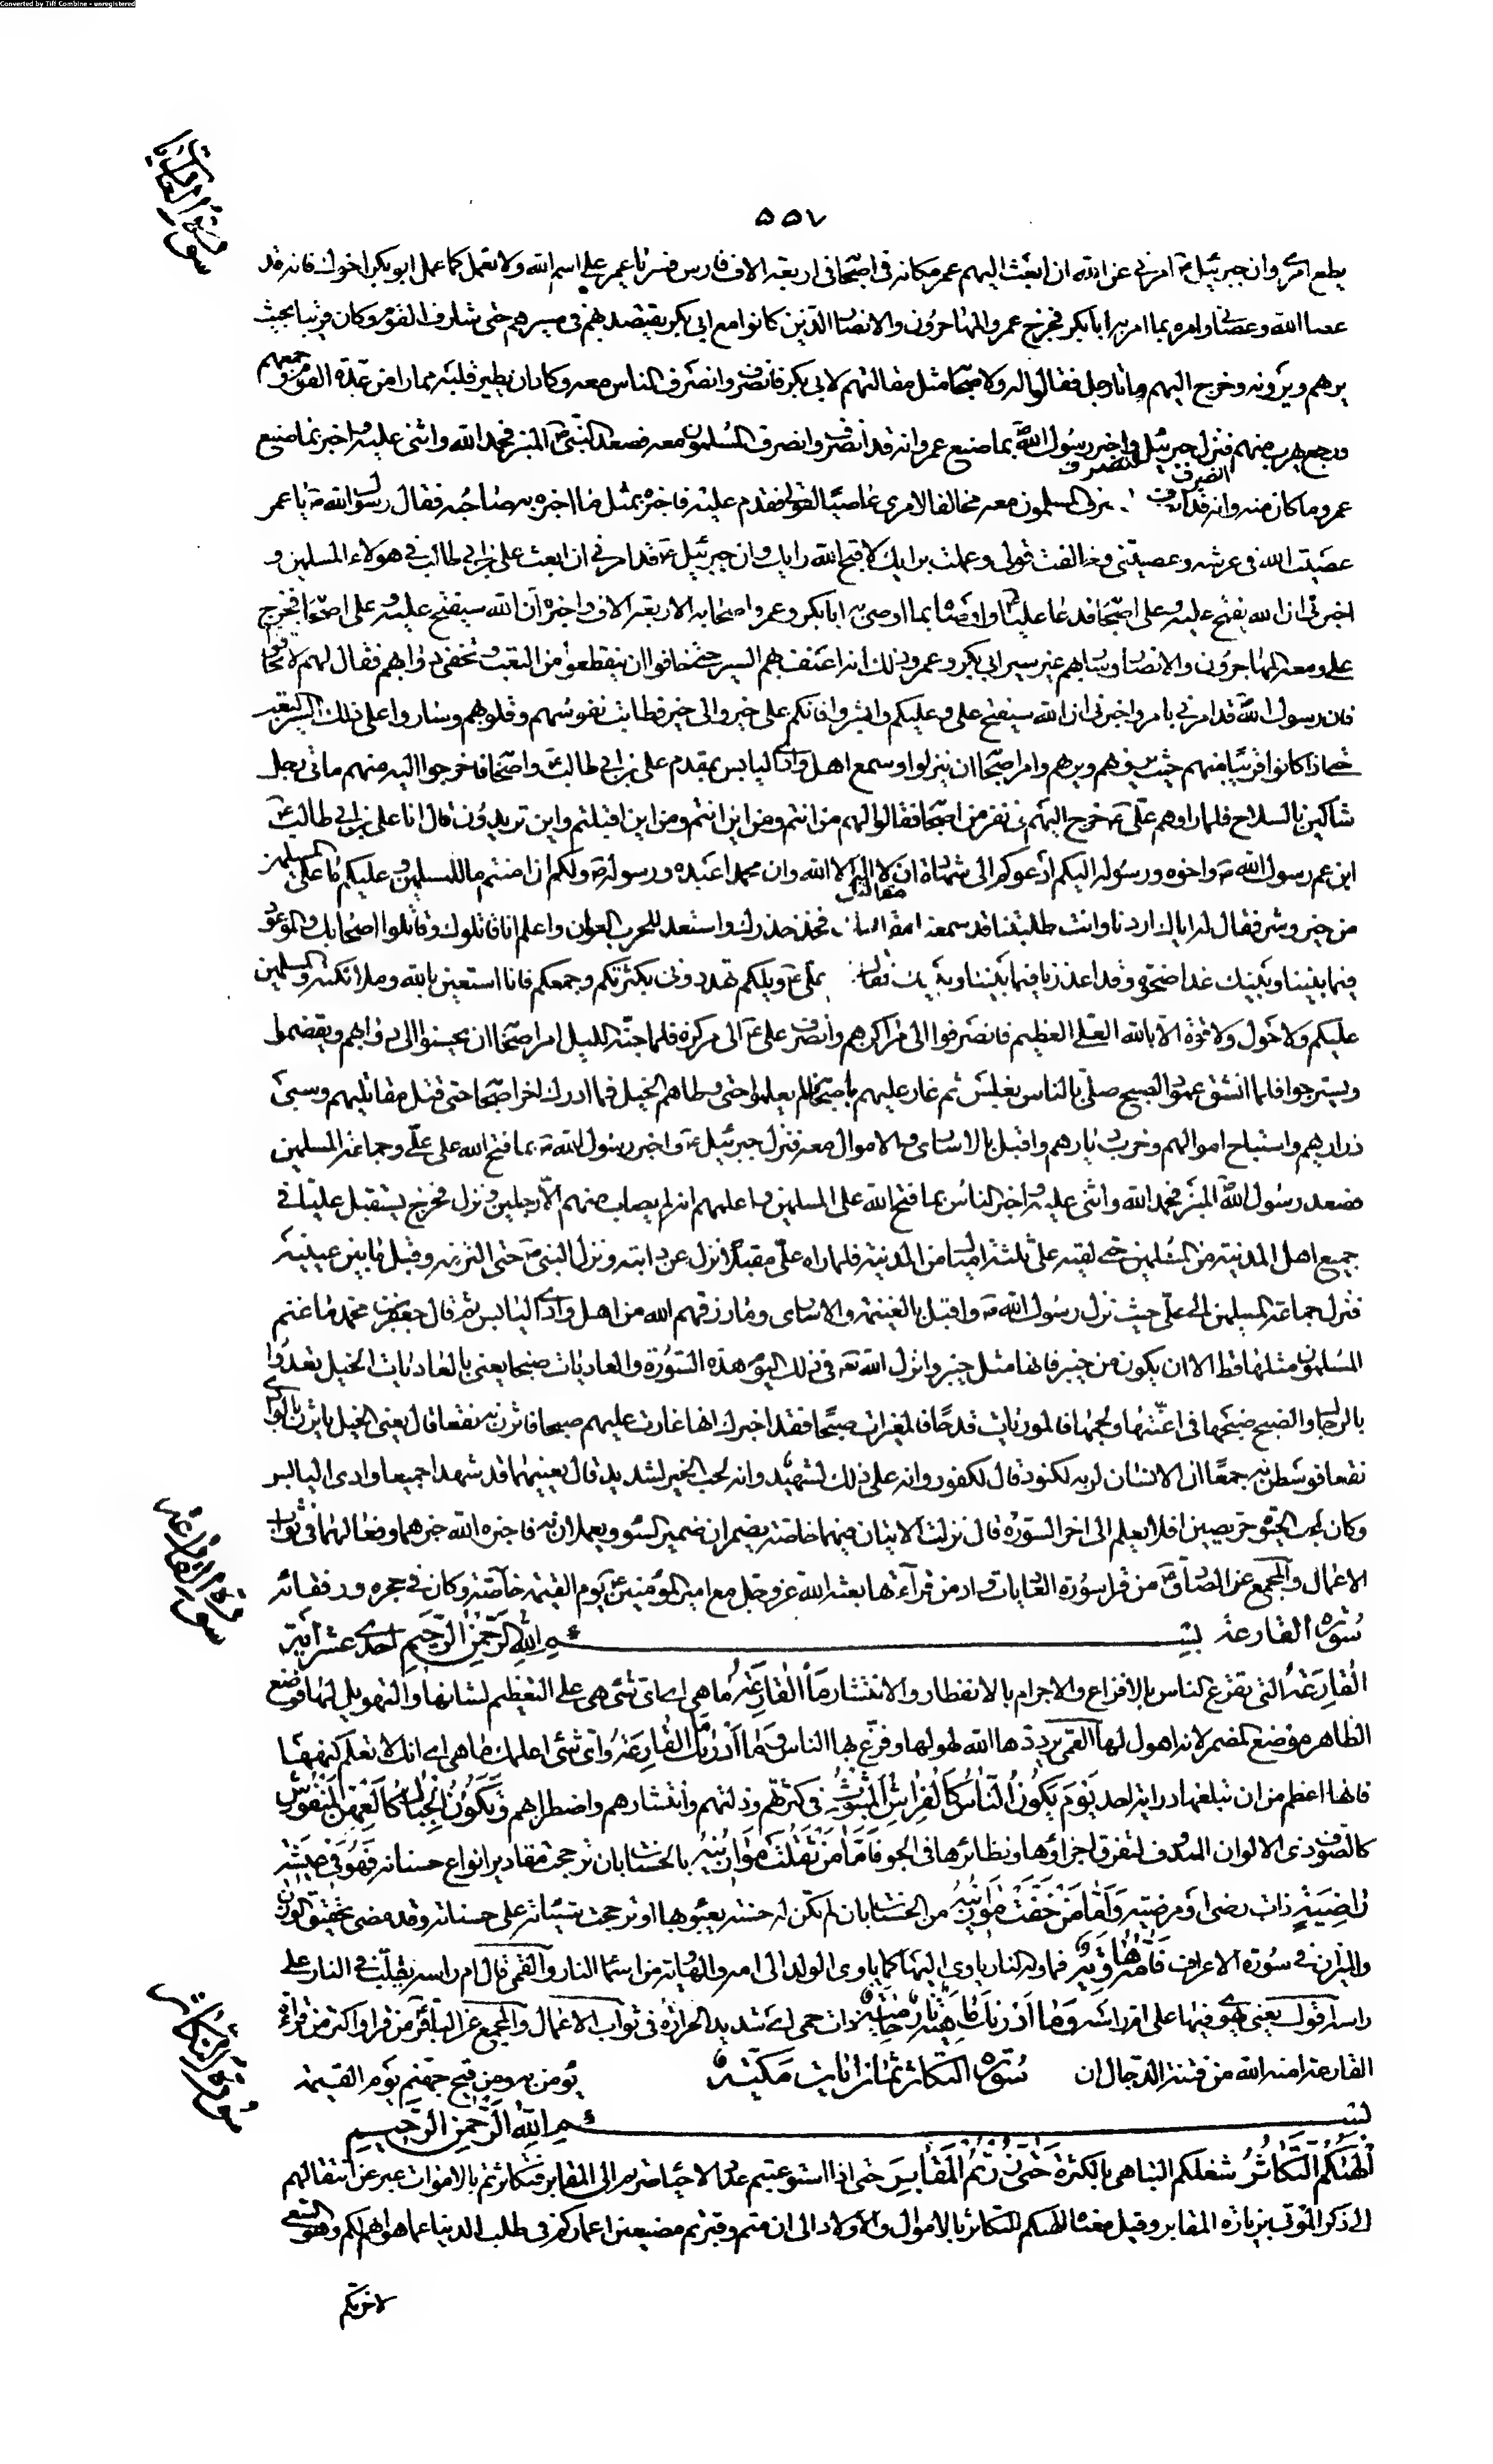 Converted by Tiff Combine - unregistered
سورة العاديات
٥٥٧
يطع امرى وان جبرئيل ع امرنى عن الله ان ابعث اليهم عمر مكانه فى اصحابه فى اربعة الاف فارس فسر يا عمر على اسم الله ولا تعمل كما عمل ابو بكر اخوك فانه قد
عصا الله وعصانى وامره بما امر به ابا بكر فخرج عمر والمهاجرون والانصار الذين كانوا مع ابى بكر يقتصد بهم فى مسيرهم حتى شارف القوم وكان قريبا بحيث
يرهم ويرونه وخرج اليهم مائتا رجل فقالوا له ولاصحابه مثل مقالتهم لابى بكر فانصرف وانصرف الناس معه وكاد ان يطير قلبه مما راى من عدة القوم وجمعهم
ورجع يهرب منهم فنزل جبرئيل واخبر رسول الله ص بما صنع عمر وانه قد انصرف وانصرف المسلمون معه فصعد النبى ص المنبر فحمد الله واثنى عليه واخبر بما صنع
عمر وما كان منه وانه قد انصرف وانصرف المسلمون معه مخالفا لامرى عاصيا لقولى فقدم عليه فاخبره بمثل ما اخبره به صاحبه فقال رسول الله ص يا عمر
عصيت الله فى عرشه وعصيتنى وخالفت قولى وعملت برايك لا قبح الله رايك وان جبرئيل ع قد امرنى ان ابعث على بن ابى طالب فى هولاء المسلمين و
اخبرنى ان الله يفتح عليه وعلى اصحابه فدعا عليا واوصاه بما اوصى به ابا بكر وعمر واصحابه الاربعة الاف واخبره ان الله سيفتح عليه وعلى اصحابه فخرج
على ومعه المهاجرون والانصار وسار بهم غير سير ابى بكر وعمر وذلك انه اعنف بهم السير حتى خافوا ان ينقطعوا من التعب وتحفى دوابهم فقال لهم لا تخافوا
فان رسول الله ص قد امرنى بامر واخبرنى ان الله سيفتح على وعليكم وابشروا فانكم على خير والى خير فطابت نفوسهم وقلوبهم وساروا على ذلك السير التعب
حتى اذا كانوا قريبا منهم حيث يرونهم ويرهم وامر اصحابه ان ينزلوا وسمع اهل وادى اليابس بمقدم على بن ابى طالب واصحابه فاخرجوا اليه منهم مائتى رجل
شاكين بالسلاح فلما راوهم على ع خرج اليهم فى نفر من اصحابه فقالوا لهم من انتم ومن اين انتم ومن اين اقبلتم واين تريدون قال انا على بن ابى طالب ع
ابن عم رسول الله ص واخوه ورسوله اليكم ادعوكم الى شهادة ان لا اله الا الله وان محمدا عبده ورسوله ص ولكم ان امنتم ما للمسلمين وعليكم ما على المسلمين
من خير وشر فقالوا له اياك اردنا وانت طلبتنا قد سمعنا مقالتك فخذ حذرك واستعد للحرب العوان واعلم انا قاتلوك وقاتلوا اصحابك والموعود
فيما بيننا وبينك غدا ضحوة وقد اعذرنا فيما بيننا وبينك فقال على ع ويلكم تهددونى بكثرتكم وجمعكم فانا استعين بالله وملائكته والمسلمين
عليكم ولا حول ولا قوة الا بالله العلى العظيم فانصرفوا الى مراكزهم وانصرف على ع الى مركزه فلما جنه الليل امر اصحابه ان يحسنوا الى دوابهم ويقضموا
ويسرجوا فلما انشق عمود الصبح صلى بالناس بغلس ثم غار عليهم باصحابه فلم يعلموا حتى وطاهم الخيل فما ادرك اخر اصحابه حتى قتل مقاتليهم وسبى
ذراريهم واستباح اموالهم وخرب ديارهم واقبل بالاسارى والاموال معه فنزل جبرئيل ع واخبر رسول الله ص بما فتح الله على على وجماعة المسلمين
فصعد رسول الله ص المنبر فحمد الله واثنى عليه واخبر الناس بما فتح الله على المسلمين واعلمهم انه لم يصاب منهم الا رجلين ونزل فخرج يستقبل عليا فى
جميع اهل المدينة من المسلمين حتى لقيه على ثلثة اميال من المدينة فلما راه على مقبلا نزل عن دابته ونزل النبى ص حتى التزمه وقبل ما بين عينيه
فنزل جماعة المسلمين الى على حيث نزل رسول الله ص واقبل بالغنيمة والاسارى وما رزقهم الله من اهل وادى اليابس ثم قال جعفر بن محمد ما غنم
المسلمون مثلها قط الا ان يكون من خيبر فانها مثل خيبر وانزل الله تعه فى ذلك اليوم هذه السورة والعاديات ضبحا يعنى بالعاديات الخيل تعدوا
بالرجال والضبح ضبحها فى اعنتها ولجمها فالموريات قدحا فالمغيرات صبحا فقد اخبرك انها غارت عليهم صبحا فاثرن به نقعا قال يعنى الخيل ياثرن بالوادى
نقعا فوسطن به جمعا ان الانسان لربه لكنود قال لكفور وانه على ذلك لشهيد وانه لحب الخير لشديد قال يعنيهما قد شهدا جميعا وادى اليابس
وكان لحب الحيوة حريصين افلا يعلم الى اخر السورة قال نزلت الايتان فيهما خاصة يضمران ضمير السوء ويعملان به فاخبره الله خبرهما وفعالهما فى ثواب
الاعمال والمجمع عن الصادق ع من قرا سورة العاديات وادمن قراءتها بعثه الله عز وجل مع امير المؤمنين ع يوم القيمة خاصة وكان فى حجره ورفقائه
سورة القارعة
سورة القارعة بسم الله الرحمن الرحيم احدى عشر اية
القارعة التى تقرع الناس بالافزاع والاجرام بالانفطار والانتشار ما القارعة ما هى اى اى شئ هى على التعظيم لشانها والتهويل لها فوضع
الظاهر موضع المضمر لانه اهول لها القمى يرددها الله لهولها وفزع بها الناس وما ادريك ما القارعة واى شئ اعلمك ما هى اى انك لا تعلم كنهها
فانها اعظم من ان تبلغها دراية احد يوم يكون الناس كالفراش المبثوث فى كثرتهم وذلتهم وانتشارهم واضطرابهم وتكون الجبال كالعهن المنفوش
كالصوف ذى الالوان المندوف لتفرق اجزاؤها وتطائرها فى الجو فاما من ثقلت موازينه بالحسنات بان ترجحت مقادير انواع حسناته فهو فى عيشة
راضية ذات رضى اى مرضية واما من خفت موازينه من الحسنات بان لم تكن له حسنة يعبؤ بها او ترجحت سيئاته على حسناته وقد مضى تحقيق الوزن
والميزان فى سورة الاعراف فامه هاوية فماويه النار ياوى اليها كما ياوى الولد الى امه والهاوية من اسماء النار والقمى قال ام راسه يقلب فى النار على
راسه اقول يعنى يهوى فيها على ام راسه وما ادريك ما هيه نار حامية ذات حمى اى شديد الحرارة فى ثواب الاعمال والمجمع عن الباقر ع من قرا واكثر من قراءة
القارعة امنه الله من فتنة الدجال ان يؤمن به ومن قيح جهنم يوم القيمة
سورة التكاثر
سورة التكاثر ثمان ايات مكية
بسم الله الرحمن الرحيم
الهيكم التكاثر شغلكم التباهى بالكثرة حتى زرتم المقابر حتى اذا استوعبتم عدد الاحياء صرتم الى المقابر فتكاثرتم بالاموات عبر عن انتقالهم
الى ذكر الموتى بزيارة المقابر وقيل معناه الهيكم التكاثر بالاموال والاولاد الى ان متم وقبرتم مضيعين اعماركم فى طلب الدنيا عما هو اهم لكم وهو السعى
لاخريكم